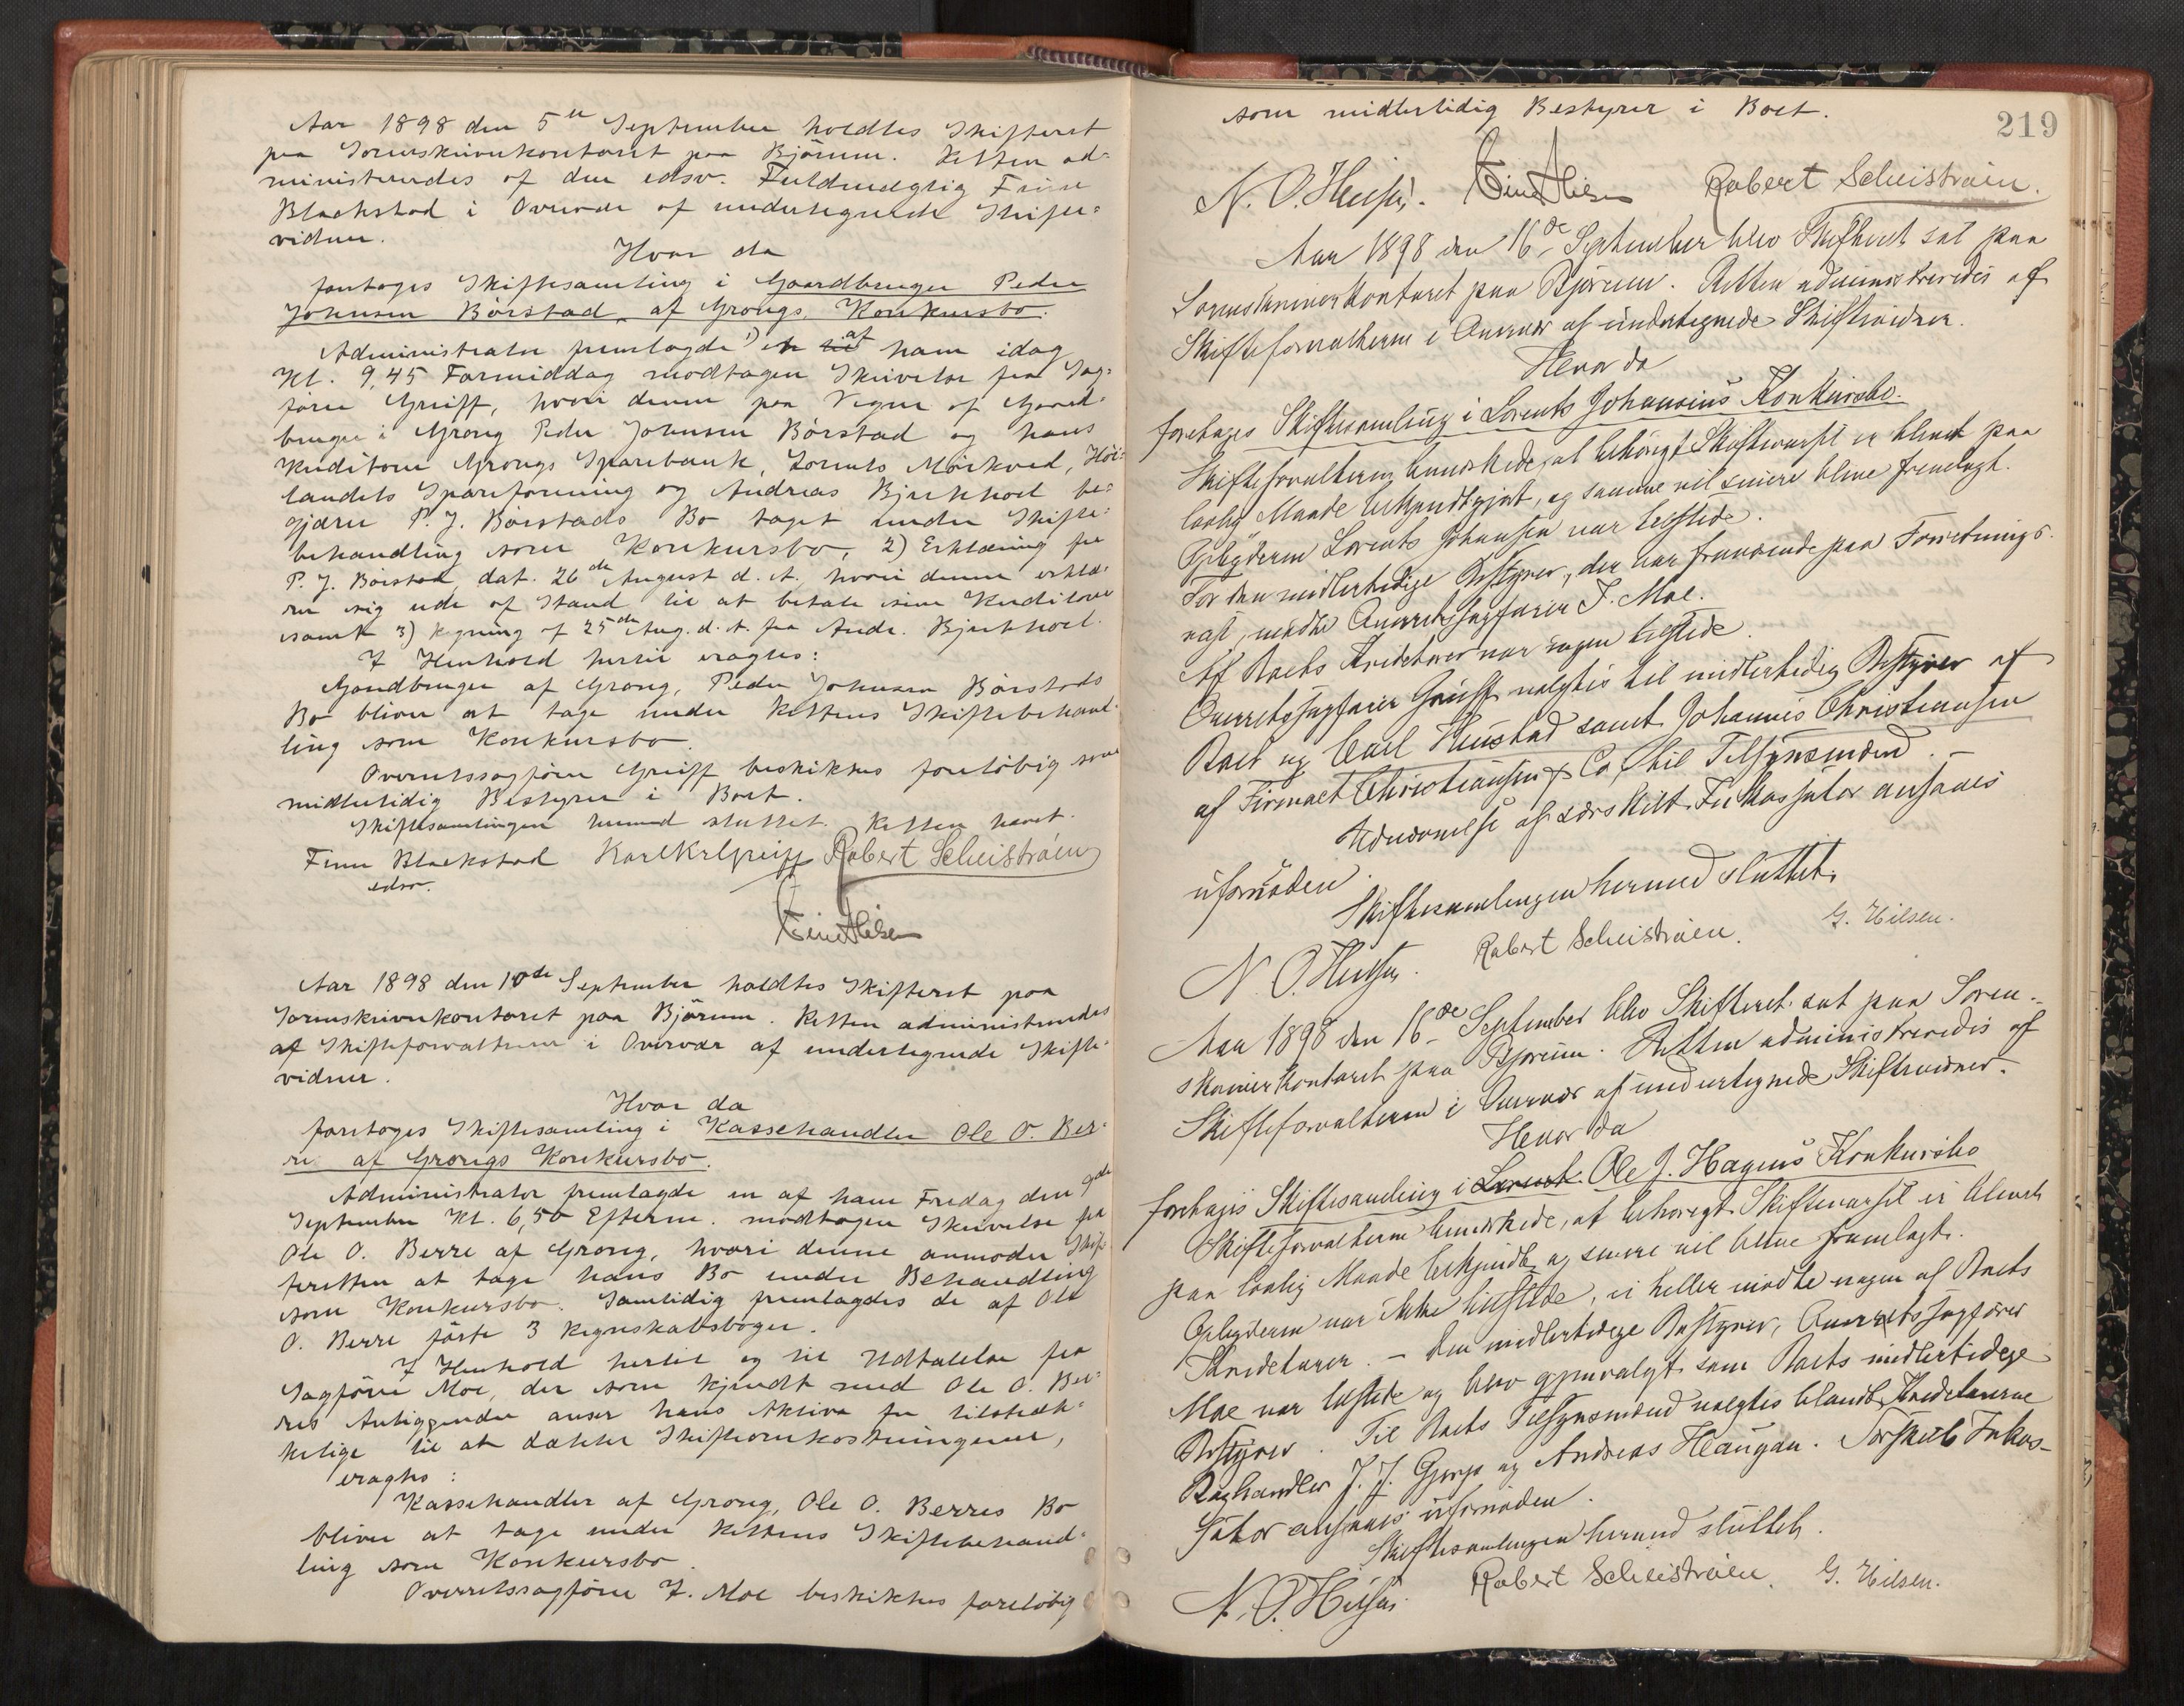 Aar 1898 den 5te September holdtes Skifteret
paa Sorenskriverkontoret paa Bjørum. Retten ad-
ministreredes af den edsv. Fuldmægtig Finn
Blackstad i Overvær af undertegnede Skifte-
vidner.
Hvor da
foretoges Skiftesamling i Gaardbruger Peder
Johnsen Børstad af Grongs Konkursbo.
Administrator fremlagde 1) en til af ham idag
Kl. 9,45 Formiddag modtagen Skrivelse fra Sag-
fører Greiff, hvori denne paa Vegne af Gaard-
bruger i Grong Peder Johnsen Børstad og hans
Kreditorer Grongs Sparebank, Lorents Mørkved, Høi-
landets Spareforening og Andreas Bjerkhoel be-
gjærer P. J. Børstads Bo taget under Skifte-
behandling som Konkursbo, 2) Erklæring fra
P. J. Børstad, dat. 26de August d. A. hvori denne erklæ-
rer sig ude af Stand til at betale sine Kreditorer
samt 3) Regning af 25de Aug. d. A. fra Andr. Bjerkhoel.
I Henhold hertil eragtes:
Gaardbruger af Grong, Peder Johnsen Børstads
Bo bliver at tage under Rettens Skiftebehand-
ling som Konkursbo.
Overretssagfører Greiff beskikkes foreløbig som
midlertidig Bestyrer i Boet.
Skiftesamlingen hermed sluttet. Retten hævet.
Finn Blackstad Karl Greiff Robert Scheistrøen
edsv.
Aar 1898 den 10de September holdtes Skifteret paa
Sorenskriverkontoret paa Bjørum. Retten administreredes
af Skifteforvalteren i Overvær af undertegnede Skifte-
vidner.
Hvor da
foretoges Skiftesamling i Kassehandler Ole O. Ber-
re af Grongs Konkursbo.
Administrator fremlagde en af ham Fredag den 9de
September Kl. 6,50 Efterm. modtagen Skrivelse fra
Ole O. Berre af Grong, hvori denne anmoder Skif-
teretten at tage hans Bo under Behandling
som Konkursbo. Samtidig fremlagdes de af Ole
O. Berre førte 3 Regnskabsbøger.
I Henhold hertil og til Udtalelse fra
Sagfører Moe, der som kjendt med Ole O. Ber-
res Anliggender anser hans Aktiva for tilstræk-
kelige til at dække Skifteomkostningerne,
eragtes:
Kassehandler af Grong, Ole O. Berres Bo
bliver at tage under Rettens Skiftebehand-
ling som Konkursbo.
Overretssagfører I. Moe beskikkes foreløbig
219
som midlertidig Bestyrer i Boet.
Robert Scheistrøen.
Aar 1898 den 16de September blev Skifteret sat paa
Sorenskriverkontoret paa Bjørum. Retten administreredes af
Skifteforvalteren i Overvær af undertegnede Skiftevidner.
Hvor da
foretages Skiftesamling i Lorents Johansens Konkursbo.
Skifteforvalteren bemærkede, at behørigt Skiftevarsel er blevet paa
lovlig Maade bekjendtgjort, og samme vil senere blive fremlagt.
Opbyderen Lorents Johansen var tilstede.
For den midlertidige Bestyrer, der var fraværende paa Forretnings-
reise, mødte Overretssagfører I. Moe.
Af Boets Kreditorer var ingen tilstede.
Overretssagfører Greiff valgtes til midlertidig Bestyrer af
Boet og Carl Heustad samt Johannes Christiansen
af Firmaet Christiansen & Co, til Tilsynsmænd. –
Udnævnelse af særskilt Inkassator ansaaes
ufornøden.
Skiftesamlingen hermed sluttet.
Robert Scheistrøen. G. Hilsen.
Aar 1898 den 16de September blev Skifteret sat paa Soren-
skriverkontoret paa Bjørum. Retten administreredes af
Skifteforvalteren i Overvær af undertegnede Skiftevidner.
Hvor da
foretages Skiftesamling i Lorents Ole J. Hagens Konkursbo
Skifteforvalteren bemærkede, at behørigt Skiftevarsel er blevet
paa lovlig Maade bekjendt, og senere vil blive fremlagt.
Opbyderen var ikke tilstede, ei heller mødte nogen af Boets
Kreditorer. – Den midlertidige Bestyrer, Overretssagfører
Moe var tilstede og blev gjenvalgt som Boets midlertidige
Bestyrer. Til Boets Tilsynsmænd valgtes blandt Kreditorerne
Boghandler J. J. Gjorv og Andreas Haugan. Særskilt Inkas-
sator ansaaes ufornøden.
Skiftesamlingen hermed sluttet.
Robert Scheistrøen. G. Hilsen.